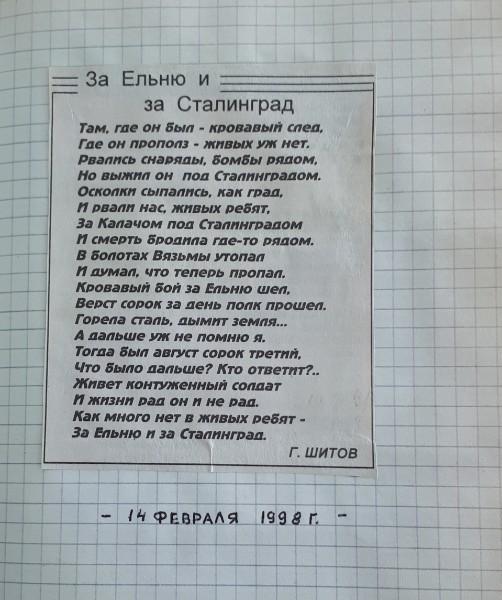 За Ельню и
за Сталинград
Там, где он был - кровавый след,
Где он прополз - живых уж нет.
Рвались снаряды, бомбы рядом,
Но выжил он под Сталинградом.
Осколки сыпались, как град,
И рвали нас, живых ребят,
За Калачом под Сталинградом
И смерть бродила где-то рядом.
В болотах Вязьмы утопал
И думал, что теперь пропал.
Кровавый бой за Ельню шел,
Верст сорок за день полк прошел.
Горела сталь, дымит земля...
А дальше уж не помню я.
Тогда был август сорок третий,
Что было дальше? Кто ответит?..
Живет контуженный солдат
И жизни рад он и не рад.
Как много нет в живых ребят -
За Ельню и за Сталинград.
Г. ШИТОВ
- 14 ФЕВРАЛЯ 1998 Г. -